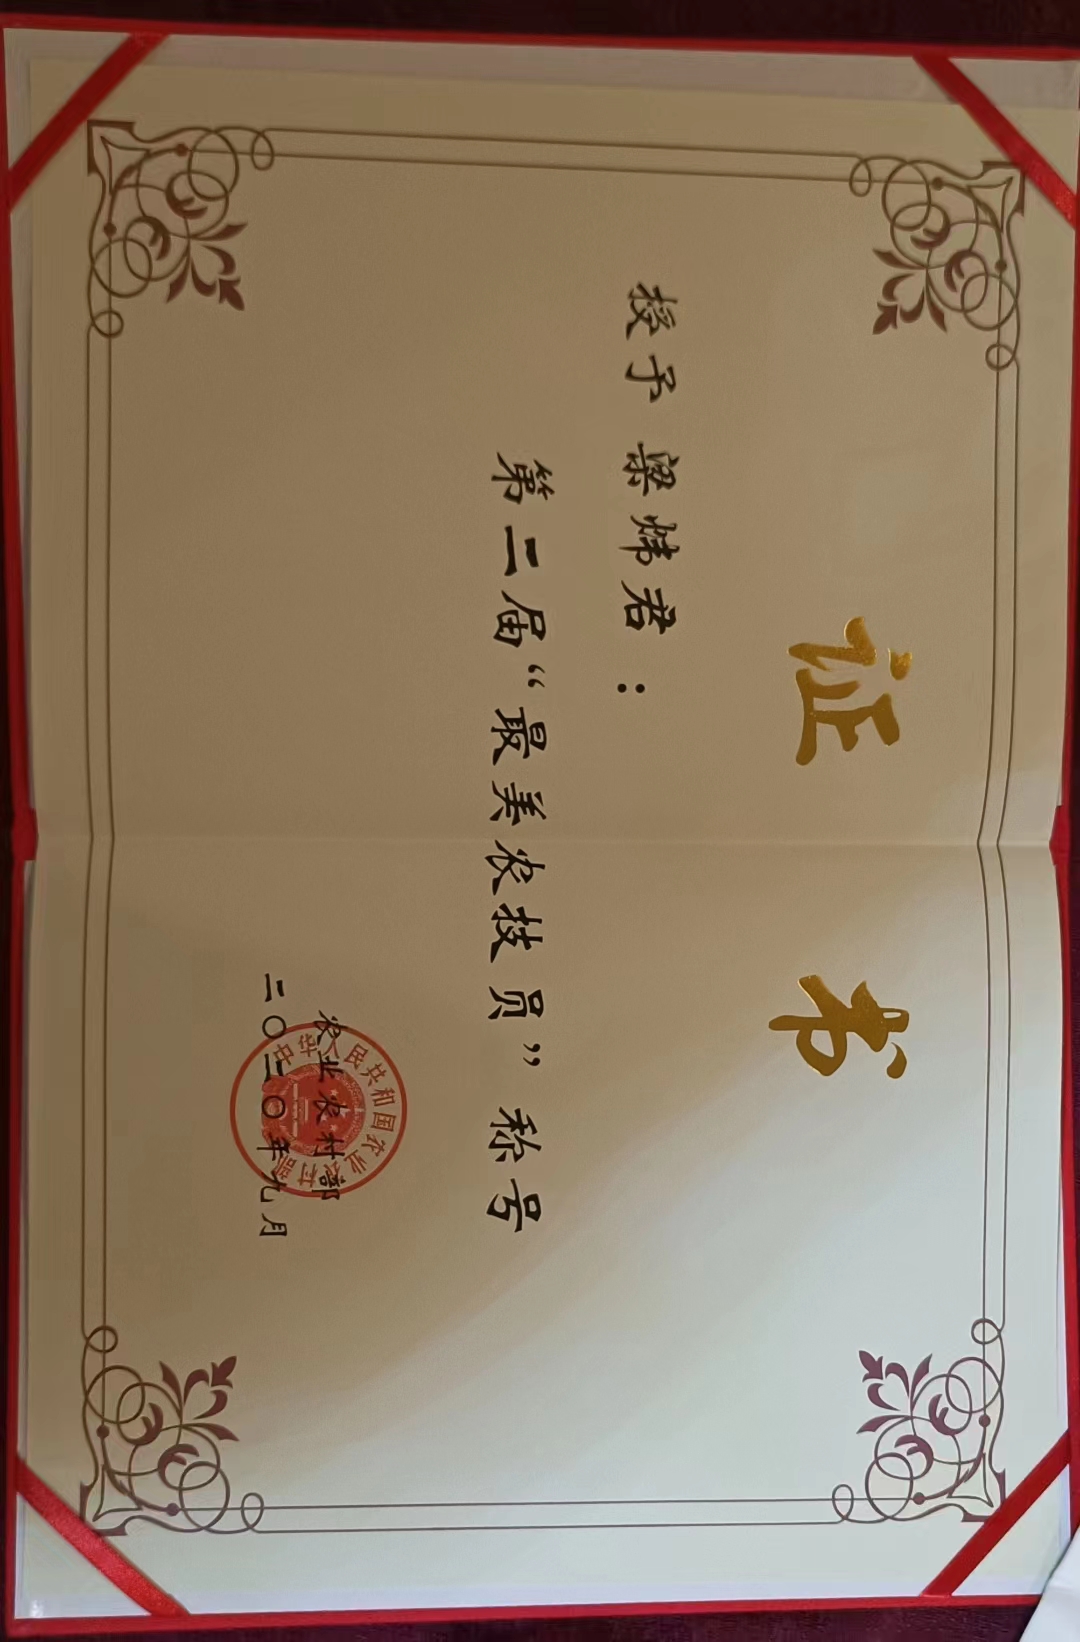 证书
授予 梁炜君：
第二届“最美农技员”称号
农业农村部
二〇二〇年九月
中华人民共和国农业农村部